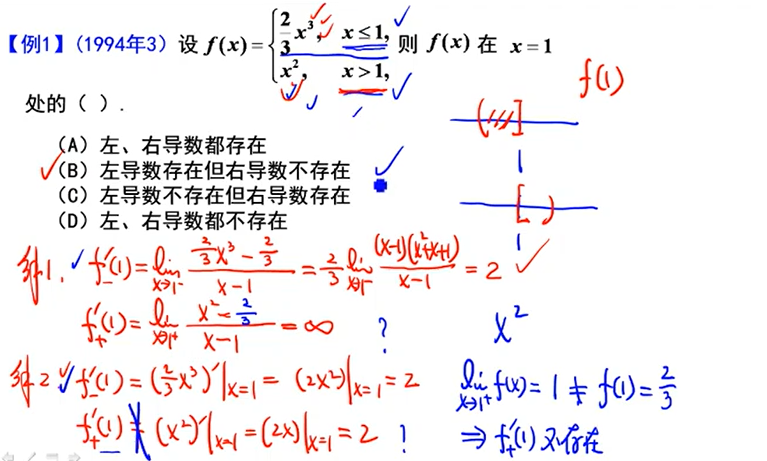 【例1】(1994年3) 设 f(x) = { 2/3 x³, x ≤ 1, x², x > 1, 则 f(x) 在 x = 1
处的( ).
f(1)
(A) 左、右导数都存在
(B) 左导数存在但右导数不存在
(C) 左导数不存在但右导数存在
(D) 左、右导数都不存在
1
1
解1. f₋′(1) = lim_{x→1⁻} (2/3 x³ − 2/3)/(x−1) = 2/3 lim_{x→1⁻} (x−1)(x²+x+1)/(x−1) = 2
f₊′(1) = lim_{x→1⁺} (x² − 2/3)/(x−1) = ∞ ?
x²
解2 f₋′(1) = (2/3 x³)′|x=1 = (2x²)|x=1 = 2
f₊′(1) = (x²)′|x=1 = (2x)|x=1 = 2 ?
lim_{x→1⁺} f(x) = 1 ≠ f(1) = 2/3
⇒ f₊′(1) 不存在